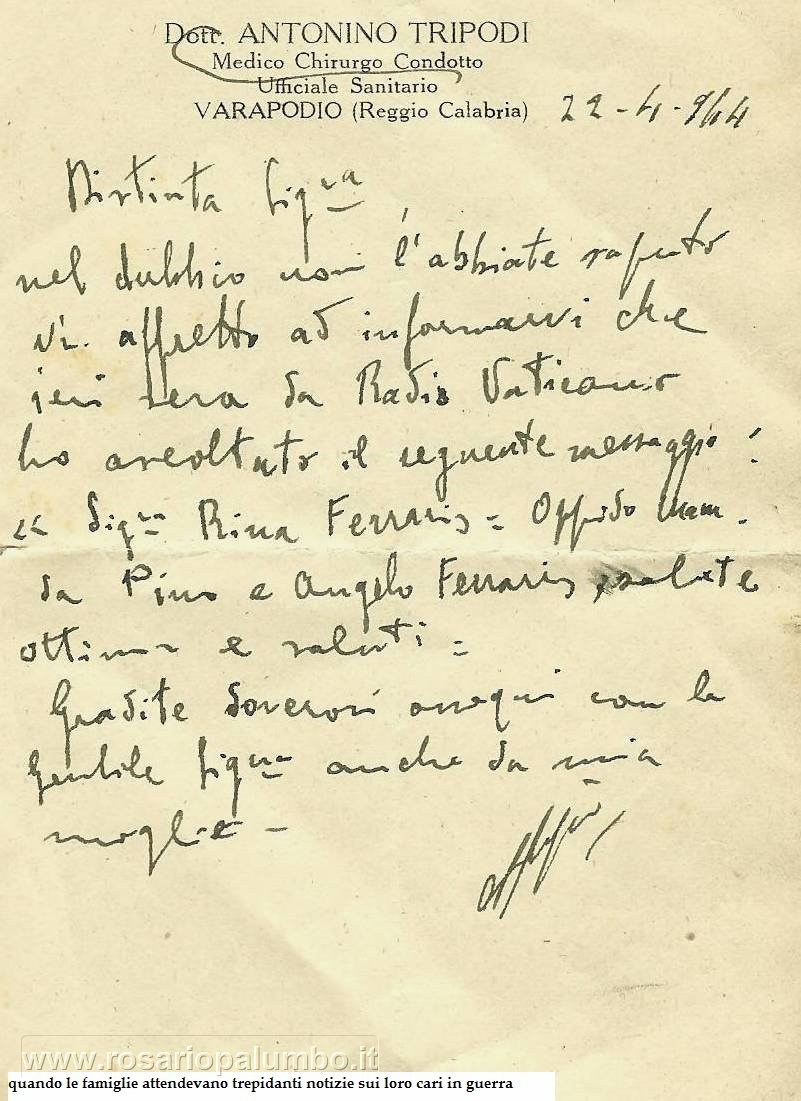 Dott. ANTONINO TRIPODI
Medico Chirurgo Condotto
Ufficiale Sanitario
VARAPODIO (Reggio Calabria) 22-4-944
Distinta Sigra
nel dubbio non l'abbiate saputo
vi affretto ad informarvi che
ieri sera da Radio Vaticano
ho ascoltato il seguente messaggio:
« Sigra Rina Ferraris = Oppido Mam.
da Pino e Angelo Ferraris, salute
ottima e saluti =
Gradite doverosi ossequi con la
Gentile Sigra anche da mia
moglie -
www.rosariopalumbo.it
quando le famiglie attendevano trepidanti notizie sui loro cari in guerra